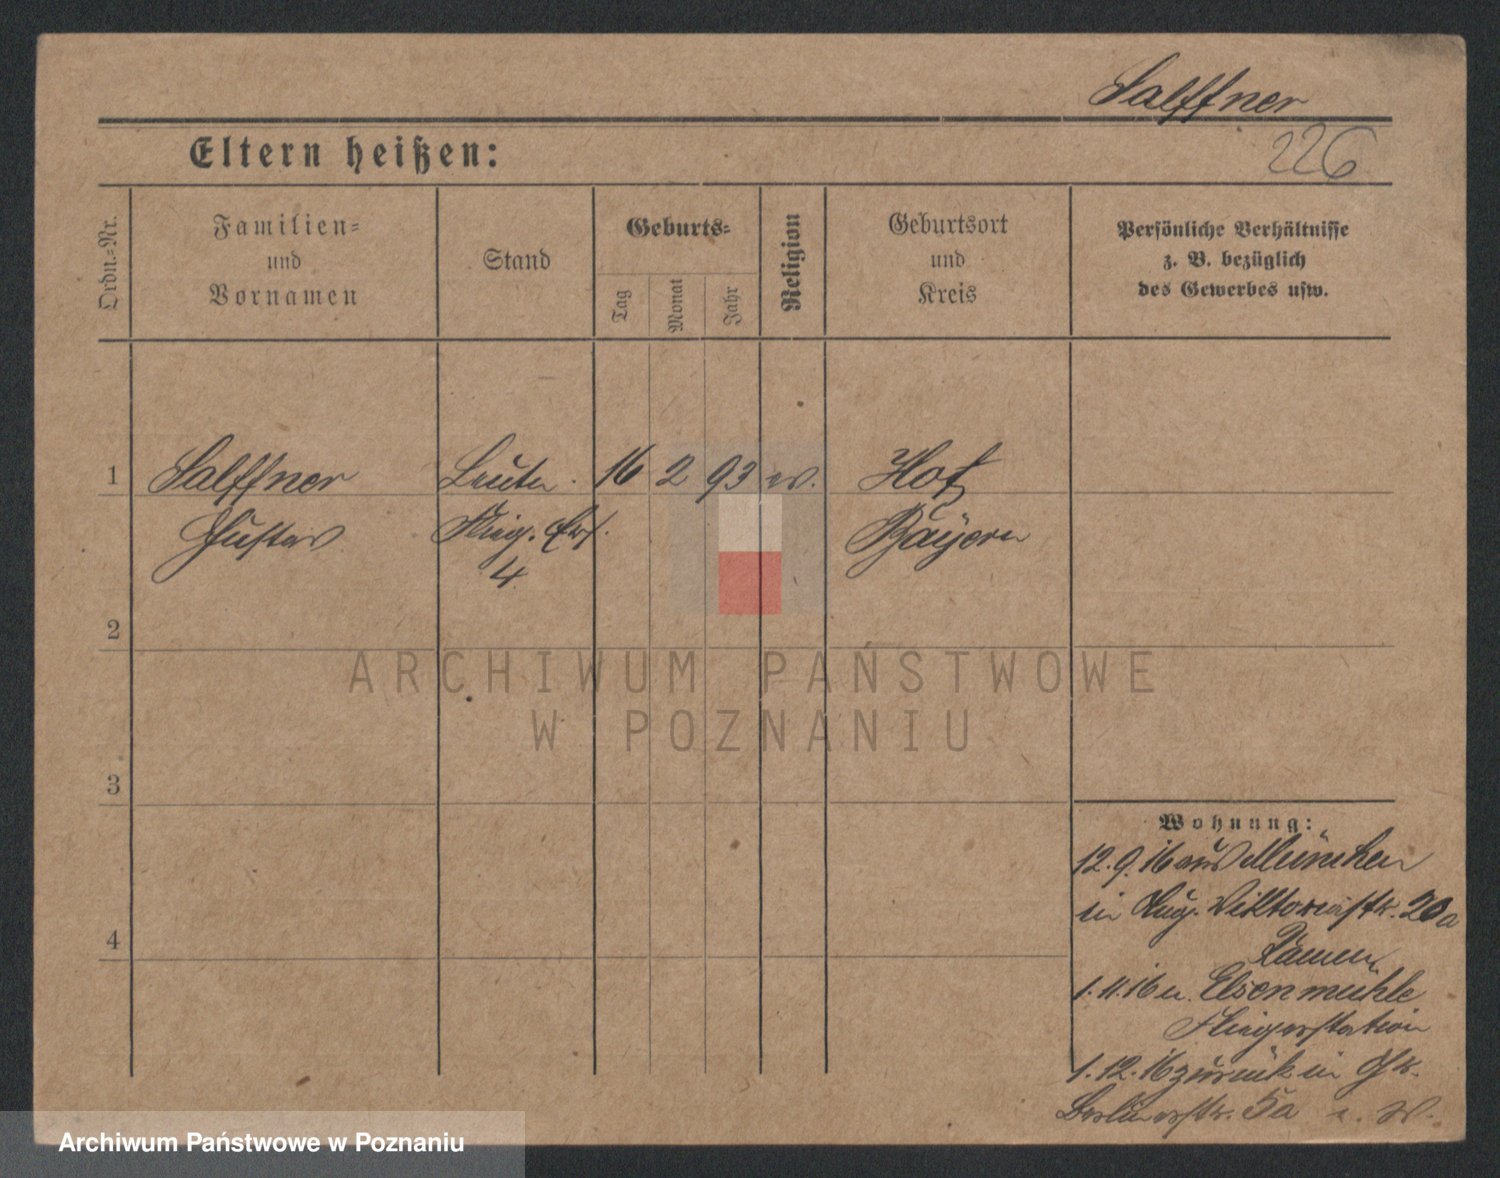 Salffner
226
Eltern heißen:
Ordn.-Nr.
Familien-
und
Vornamen
Stand
Geburts-
Tag
Monat
Jahr
Religion
Geburtsort
und
Kreis
Persönliche Verhältnisse
z. B. bezüglich
des Gewerbes usw.
1
Salffner Leutn. 16 2 93 ev. Hof
Gustav Flieg. Ers. Bayern
4
2
3
4
ARCHIWUM PAŃSTWOWE
W POZNANIU
Wohnung:
12.9.16 aus München
in Viktoriastr. 20a
1.11.16 n. Elsenmühle
Fliegerstation
1.12.16 zurück in
Berlinerstr. 5a
Archiwum Państwowe w Poznaniu